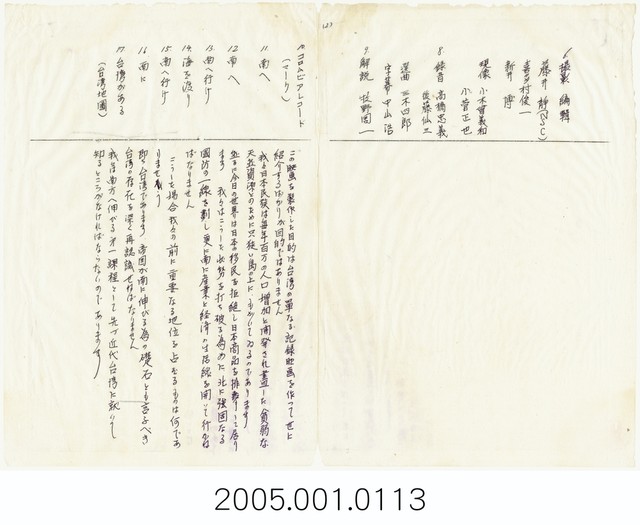 123
6 撮影 編輯
藤井 静 (JSC)
喜多村俊一
新井 博
現像 小木曽義和
小菅正也
8 録音 高橋忠義
佐藤仙三
選曲 三木四郎
字幕 中山浩
9 解説 牧野周一
10 コロムビアレコード
(マーク)
11 南へ
12 南へ
13 南へ行け
14 海を渡り
15 南へ行け
16 南に
17 台湾がある
(台湾地図)
この映画を製作した目的は台湾の単なる記録映画を作つて世に
紹介するばかりが目的ではありません
我々日本民族は毎年百万の人口増加と開発され盡した貧弱な
天然資源とのために只狭い島の上にもがいてゐるのであります
並に今日の世界は日本の移民を拒絶し日本商品を排斥して居り
ます 我々はこうした情勢を打ち破る為めに北に強固なる
国防の一線を劃し更に南に産業と経済の生活線を開いて行かね
ばなりません
こうした場合我々の前に重要なる地位を占むるものは何であ
りませう
即ち台湾であります 帝国が南に伸びる為の礎石とも言ふべき
台湾の存在を深く再認識せねばなりません
我々は南方へ伸びる第一課程として先づ近代台湾に就いて
知るところがなければならないのであります
2005.001.0113